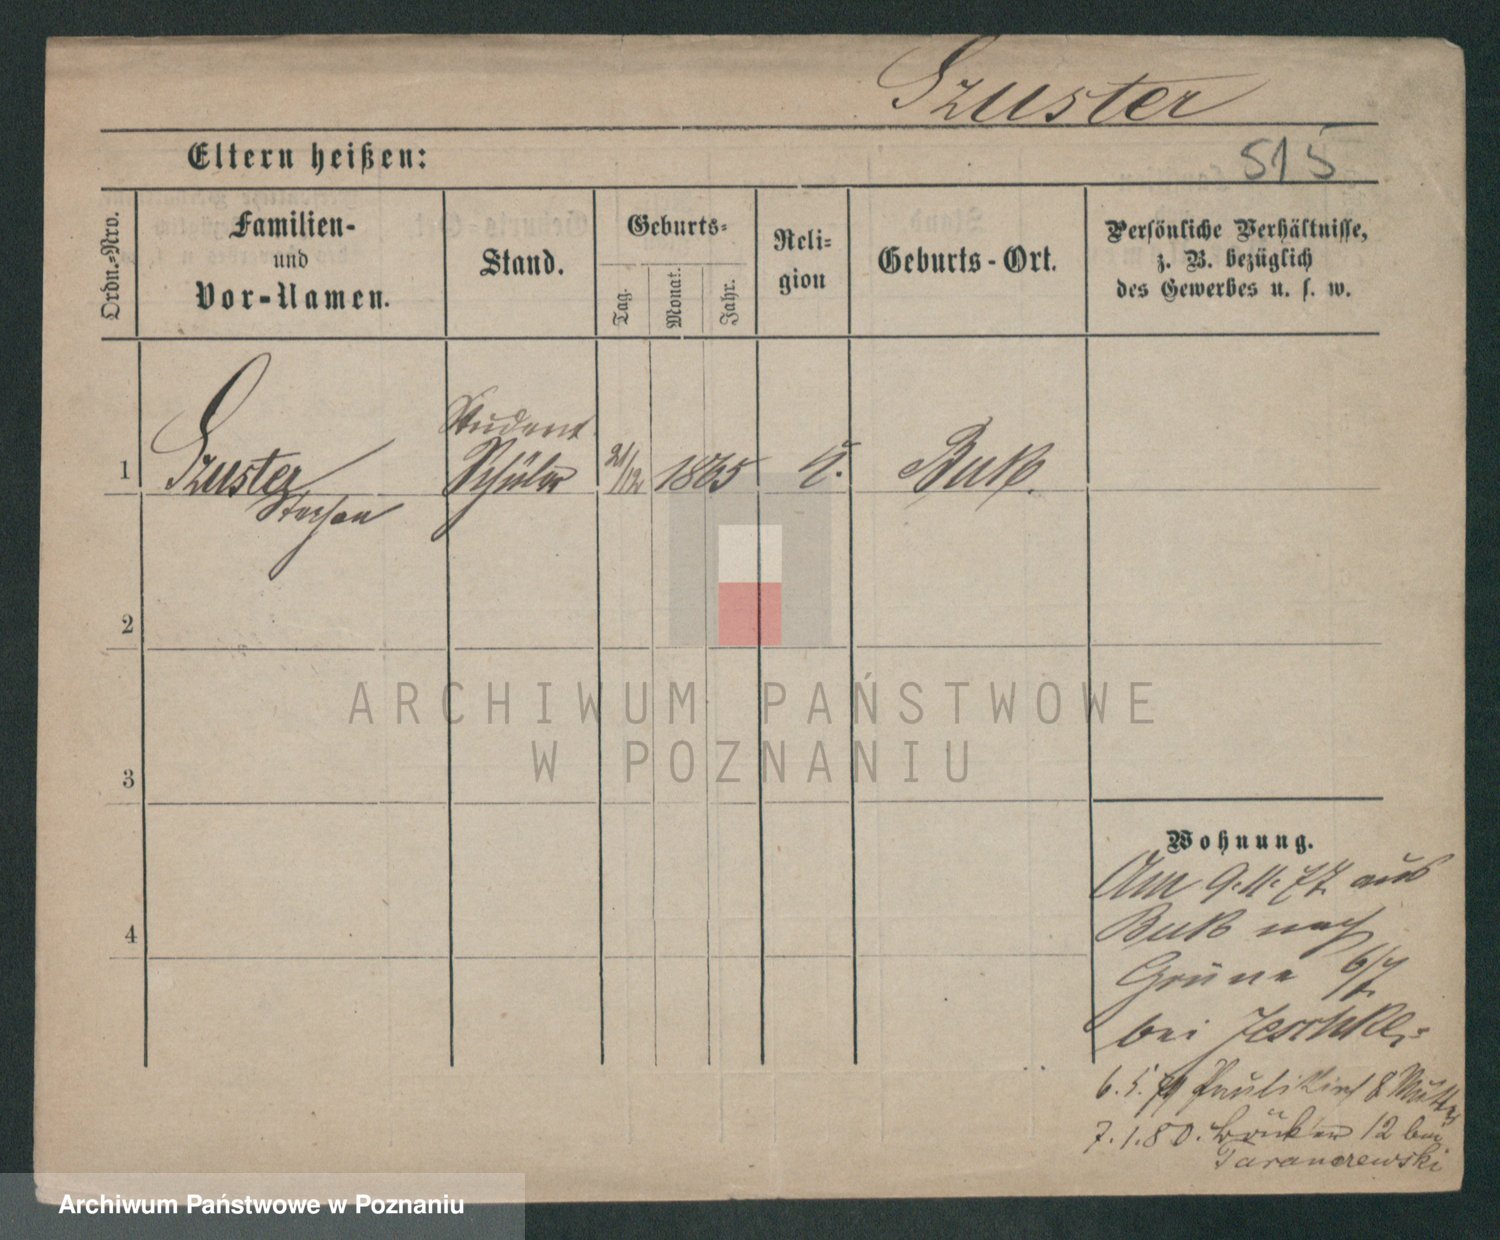 Szuster
Eltern heißen:
515
Ordn.-Nro.
Familien-
und
Vor-Namen.
Stand.
Geburts-
Tag.
Monat.
Jahr.
Reli-
gion
Geburts-Ort.
Persönliche Verhältnisse,
z. B. bezüglich
des Gewerbes u. s. w.
1
Szuster
Stephan
Student
Schüler
21/12 1865
k.
Buk.
2
3
4
Wohnung.
Am 9.11.77. aus
Buk nach
Grüne 6/7.
bei Jeschke.
6.5.79 Paulikirch 8 Mutter
7.1.80. 12 bei
Taranczewski
ARCHIWUM PAŃSTWOWE
W POZNANIU
Archiwum Państwowe w Poznaniu